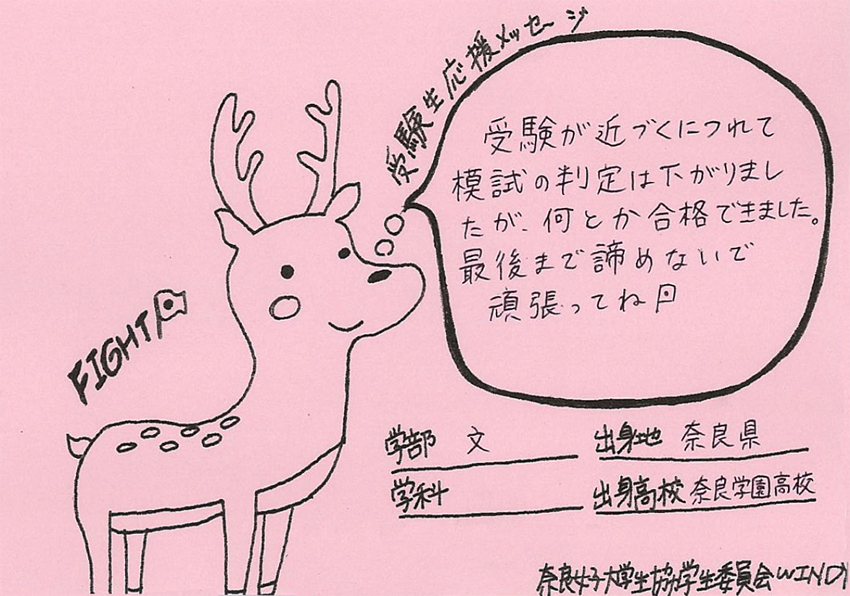 受験生応援メッセージ
受験が近づくにつれて
模試の判定は下がりまし
たが、何とか合格できました。
最後まで諦めないで
頑張ってね
FIGHT
学部 文 出身地 奈良県
学科 出身高校 奈良学園高校
奈良女子大学生協学生委員会WINDY